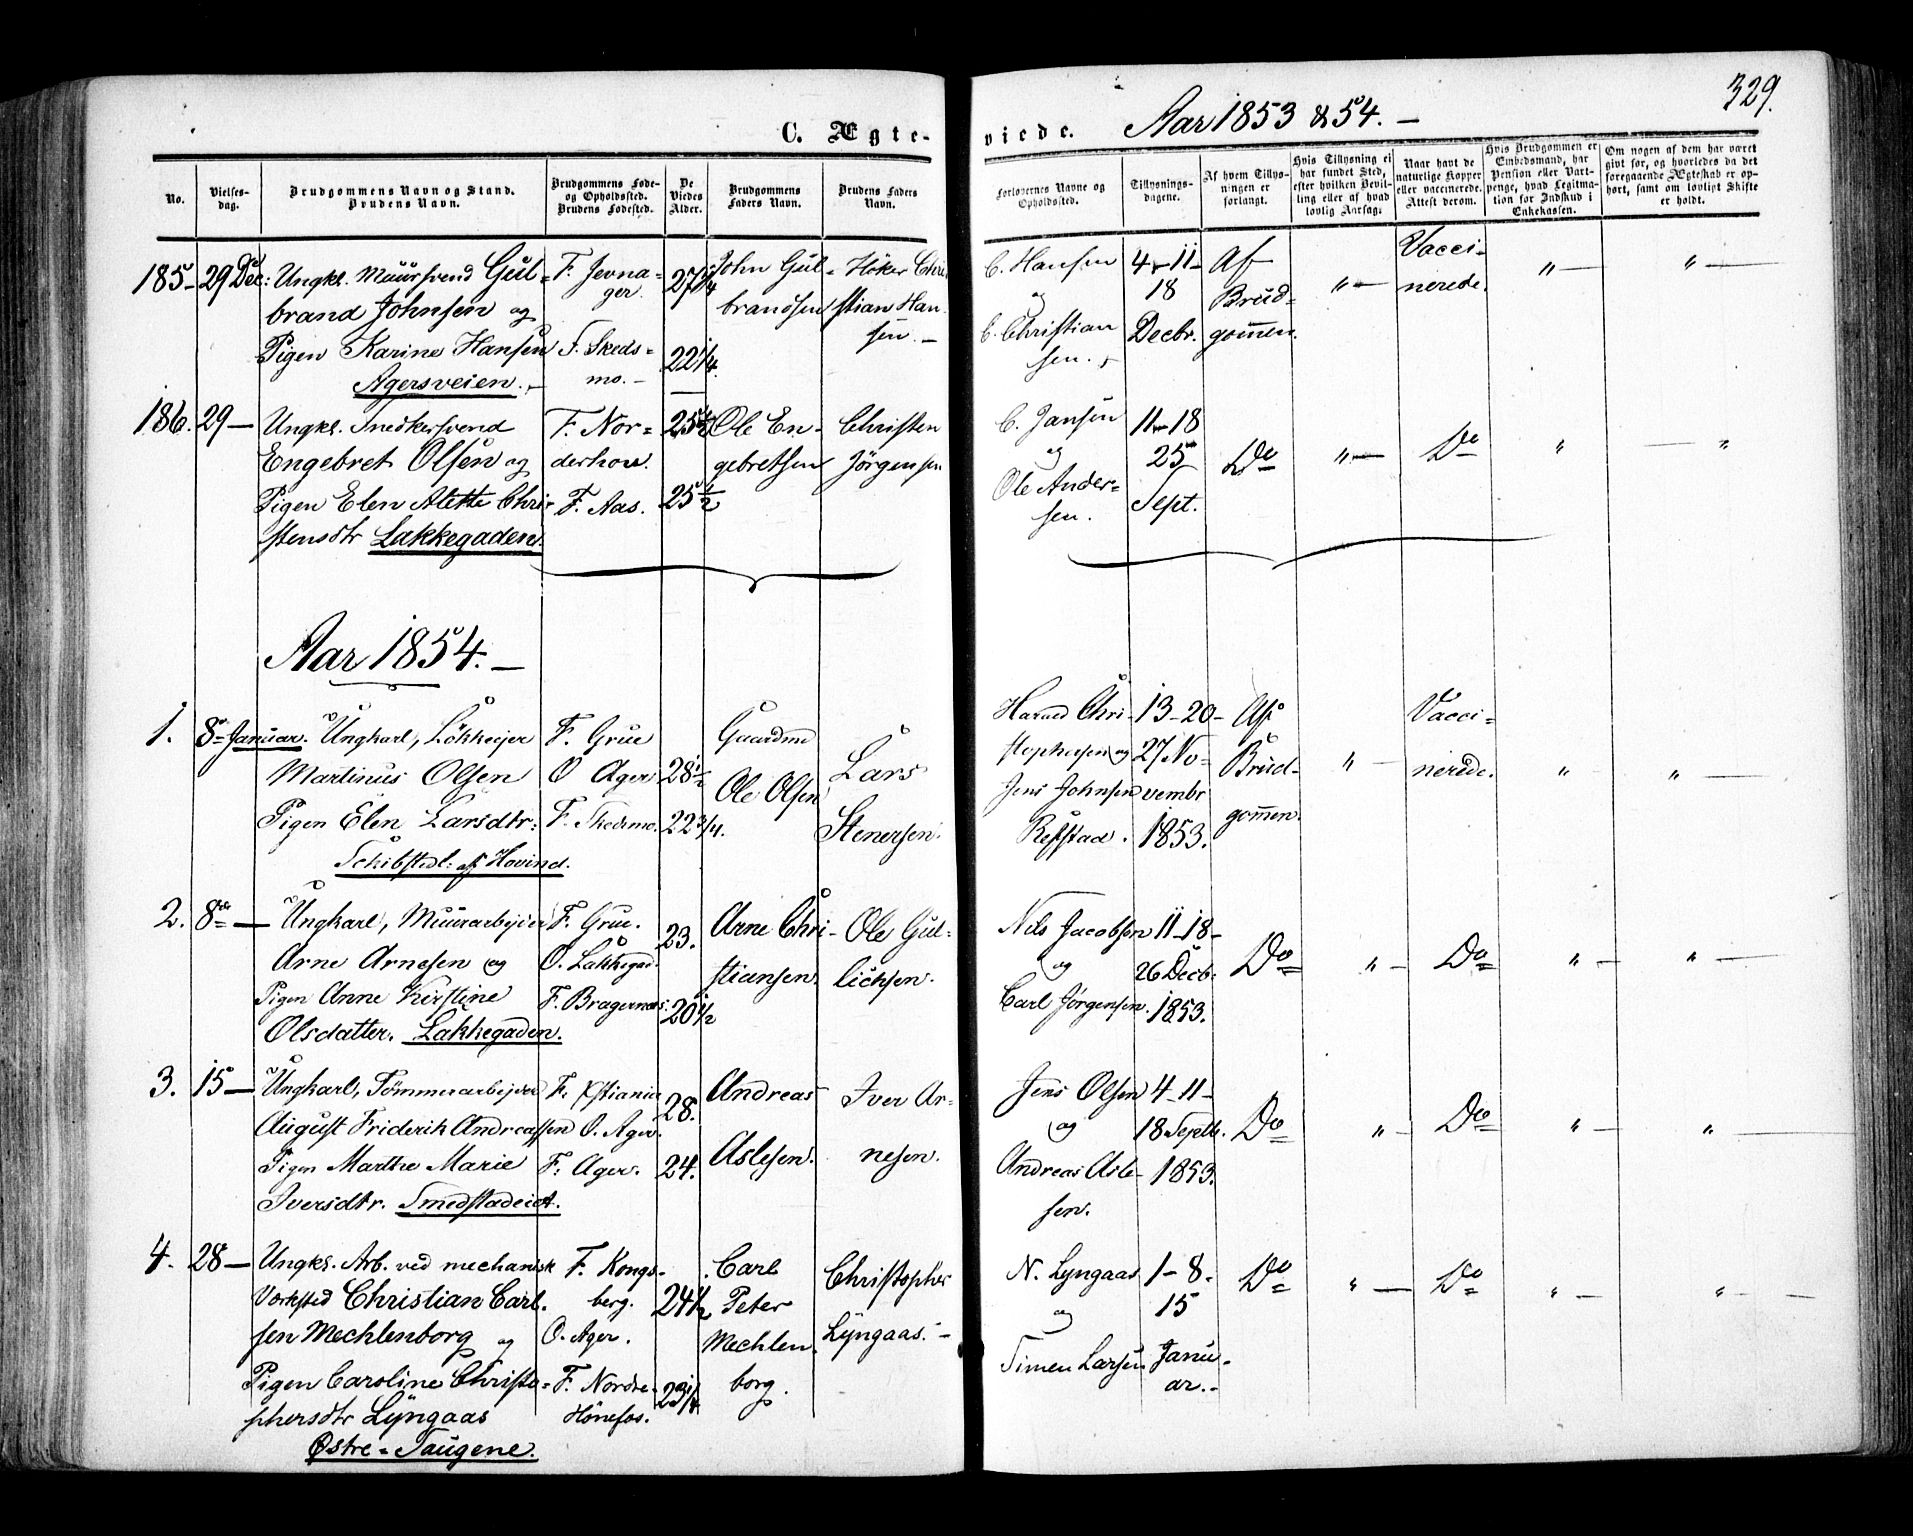 329.
C. Ægte-
viede. Aar 1853 & 54. —
No.
Vielses-
dag.
Brudgommens Navn og Stand.
Brudens Navn.
Brudgommens Føde-
og Opholdssted.
Brudens Fødested.
De
Viedes
Alder.
Brudgommens
Faders Navn.
Brudens Faders
Navn.
Forlovernes Navne og
Opholdssted.
Tillysnings-
dagene.
Af hvem Tillys-
ningen er
forlangt.
Hvis Tillysning ei
har fundet Sted,
efter hvilken Bevil-
ling eller af hvad
lovlig Aarsag.
Naar havt de
naturlige Kopper
eller vaccinerede.
Attest derom.
Hvis Brudgommen er
Embedsmand, har
Pension eller Vart-
penge, hvad Legitima-
tion for Indskud i
Enkekassen.
Om nogen af dem har været
givt før, og hvorledes da det
foregaaende Ægteskab er op-
hørt, samt om lovligt Skifte
er holdt.
185 - 29 Dec: Ungkl. Muursvend Gul-
brand Johnsen og
Pigen Karine Hansen
Agersveien. -
F. Jevna-
ger.
F. Skeds-
mo. -
27 1/4
22 1/4.
John Gul-
brandsen
Höker Chri-
stian Han-
sen. —
C. Hansen
og
C. Christian
sen. -
4 - 11 -
18
Decbr.
Af
Brud-
gommen.
" —
Vacci-
nerede.
" —
" —
186. 29 — Ungkl. Snedkersvend
Engebret Olsen og
Pigen Elen Alette Chri-
stensdtr Lakkegaden.
F. Nor-
derhov.
F. Aas.
25 1/2
25 1/2
Ole En-
gebretsen
Christen
Jörgensen
C. Jansen
og
Ole Ander-
sen.
11 - 18
25
Sept.
Do
" —
Do
"
— "
Aar 1854. —
1. 8de Januar. Ungkarl, Lökkeejer
Martinus Olsen
Pigen Elen Larsdtr.
Schibstedl: af Hovind.
F. Grue
O Ager
F. Skedsmo.
28 1/2
22 3/4.
Gaardmd
Ole Olsen
Lars
Stenersen.
Harald Chri-
stophersen og
Jens Johnsen
Refstad.
13 - 20 -
27 No-
vembr
1853.
Af
Brud-
gommen.
" —
Vacci-
nerede.
" —
" —
2. 8de — Ungkarl, Muurarbejder
Arne Arnesen og
Pigen Anne Kirstine
Olsdatter. Lakkegaden.
F. Grue.
O. Lakkegad.
F. Bragernæs.
23.
20 1/2
Arne Chri-
stiansen.
Ole Gul-
lichsen.
Nils Jacobsen
og
Carl Jørgensen.
11 - 18 -
26 Decb:
1853.
Do
" —
Do
" —
" —
3. 15 — Ungkarl, Tömmerarbejder
August Friderik Andreassen
Pigen Marthe Marie
Iversdtr. Smedstadeiet.
F. Xstiania
O. Ager.
F: Ager.
28.
24.
Andreas
Aslesen.
Iver Ar-
nesen.
Jens Olsen
og
Andreas Asle-
sen.
4 - 11 -
18 Septb.
1853.
Do
" —
Do
" —
" —
4. 28 — Ungkl. Arb. ved mechanisk
Værksted Christian Carl-
sen Mechlenborg og
Pigen Caroline Christo-
phersdtr Lyngaas
Østre-Saugene.
F. Kongs-
berg.
O. Ager.
F. Nordre-
Hönefos.
24 1/2
Carl
Peter
Mechlen-
borg.
Christopher
Lyngaas. -
N. Lyngaas
og
Simen Larsen
1 - 8.
15
Janu-
ar. -
Do
" —
Do
" —
" —